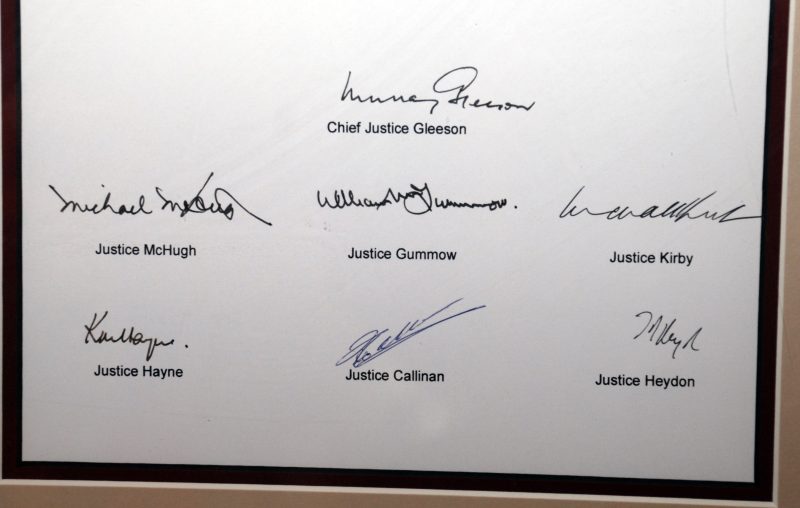 Murray Gleeson
Chief Justice Gleeson
Michael McHugh
William Gummow.
Justice McHugh
Justice Gummow
Justice Kirby
Justice Hayne
Justice Callinan
Justice Heydon